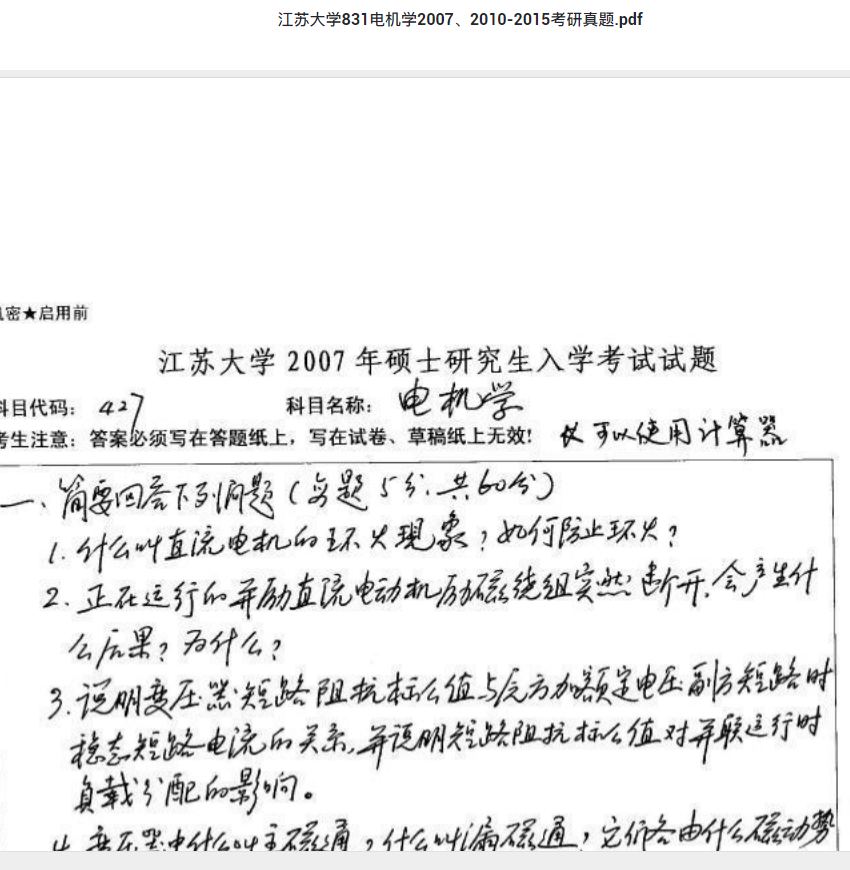 江苏大学831电机学2007、2010-2015考研真题.pdf
密★启用前
江苏大学 2007 年硕士研究生入学考试试题
科目代码： 427 科目名称： 电机学
考生注意：答案必须写在答题纸上，写在试卷、草稿纸上无效! 仅可以使用计算器
一、简要回答下列问题（每题5分,共60分）
1. 什么叫直流电机的环火现象？如何防止环火？
2. 正在运行的并励直流电动机励磁绕组突然断开,会产生什
么后果？为什么？
3. 说明变压器短路阻抗标么值与原方加额定电压副方短路时
稳态短路电流的关系,并说明短路阻抗标么值对并联运行时
负载分配的影响。
4. 变压器中什么叫主磁通，什么叫漏磁通，它们各由什么磁动势